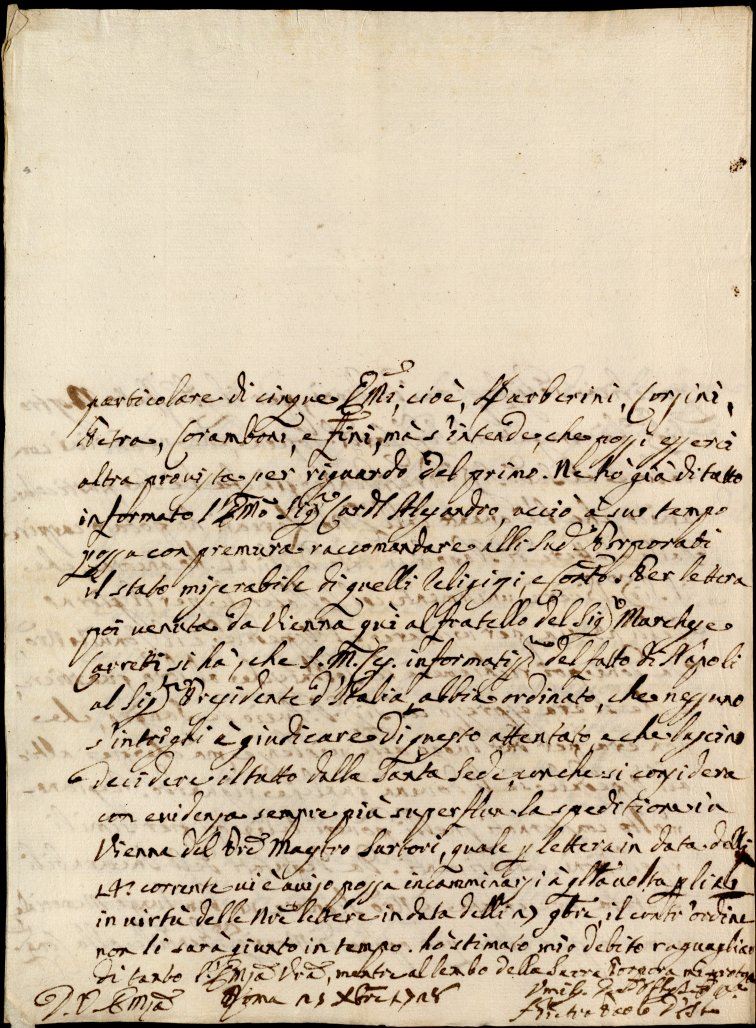 particolare di cinque Emi, cioè, Barberini, Corsini,
Petra, Coramboni, e Fini, mà s'intende, che possi esserci
altra provista per riguardo del primo. Ne hò già di tutto
informato l'Emo Sigr Cardl Alesandro, acciò à suo tempo
possa con premura raccomandare alli sudi Porporati
il stato miserabile di quelli Religiosi, e Conto. Per lettera
poi venuta da Vienna quì al fratello del Sigr Marchese
Carretti si hà, che S. M. Ces. informatissa del fatto di Napoli
al Sigr Presidente d'Italia, abbia ordinato, che nessuno
s'intrighi à giudicare di questo attentato, e che lascino
decidere il tutto dalla Santa Sede, con che si considera
con evidenza sempre più superflua la speditione in
Vienna del Pre Maestro Sartori, quale p lettera in data delli
14 corrente vi è aviso possa incamminarsi à qlla volta p
in virtù delle Nre lettere in data delli 27 9bre, il contr'ordine
non li sarà giunto in tempo. hò stimato mio debito raguagliar
di tanto l'Emza Vra, mentre al lembo della Sacra Porpora mi
D. V. Emza Roma 25 Xbre 1728